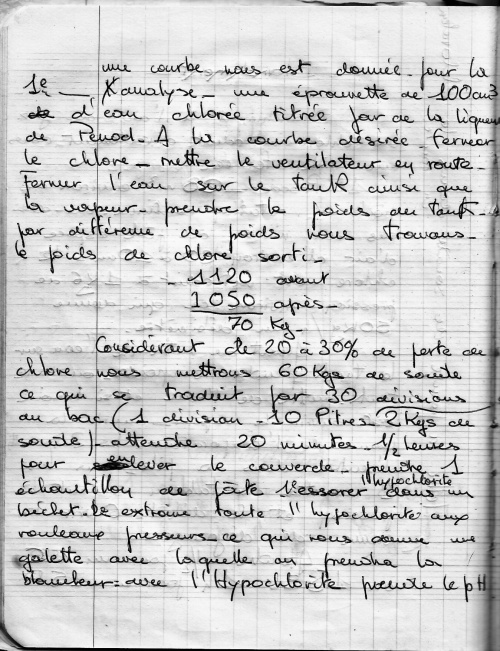 une courbe nous est donnée. pour la
1e — X analyse. une éprouvette de 100 cm3
d'eau chlorée titrée par de la liqueur
de Penod. A la courbe désirée. fermer
le chlore. mettre le ventilateur en route.
Fermer l'eau sur le tank ainsi que
la vapeur. prendre le poids du tank.
par différence de poids nous trouvons.
le poids de chlore sorti.
1120 avant
1050 après.
70 Kg.
Considérant de 20 à 30% de perte de
chlore nous mettrons 60 Kgs de soude
ce qui se traduit par 30 divisions
au bac (1 division. 10 litres. 2 Kgs de
soude). attendre 20 minutes. 1/2 heures
pour enlever le couvercle. prendre 1
"hypochlorite
échantillon de pâte l'essorer dans un
bichet. extraire toute l'hypochlorite aux
rouleaux presseurs. ce qui nous donne une
galette avec laquelle on prendra la
blancheur = avec l'Hypochlorite prendre le pH